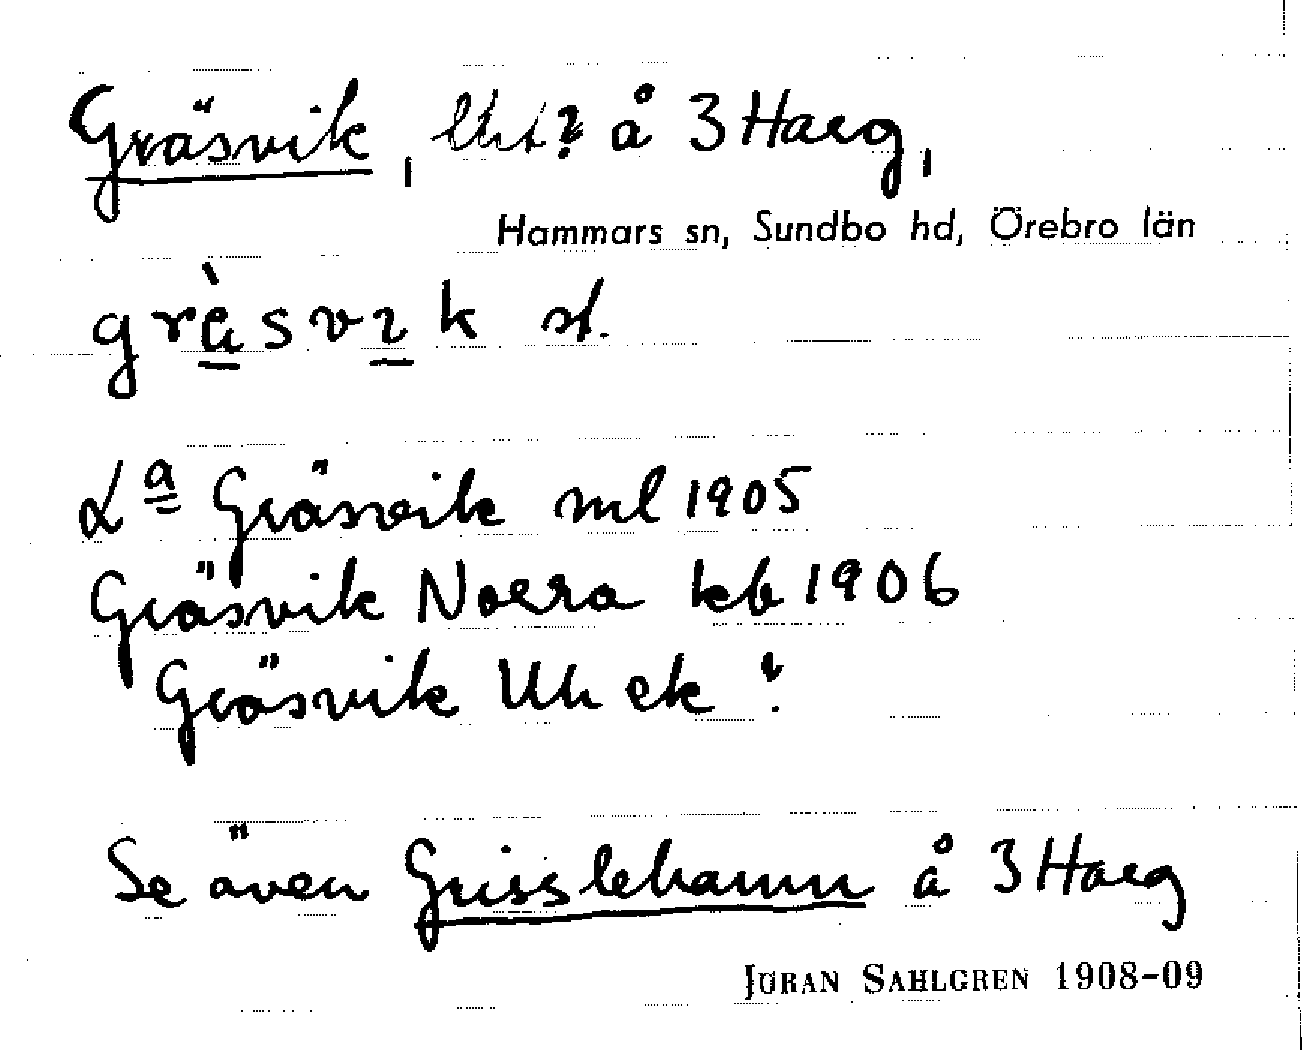 Gräsvik, lht? å 3 Harg,
Hammars sn, Sundbo hd, Örebro län
gràsvık st.
La Gräsvik ml 1905
Gräsvik Norra kb 1906
Gräsvik Uh ek?
Se även Grisslehamn å 3 Harg
JÖRAN SAHLGREN 1908-09